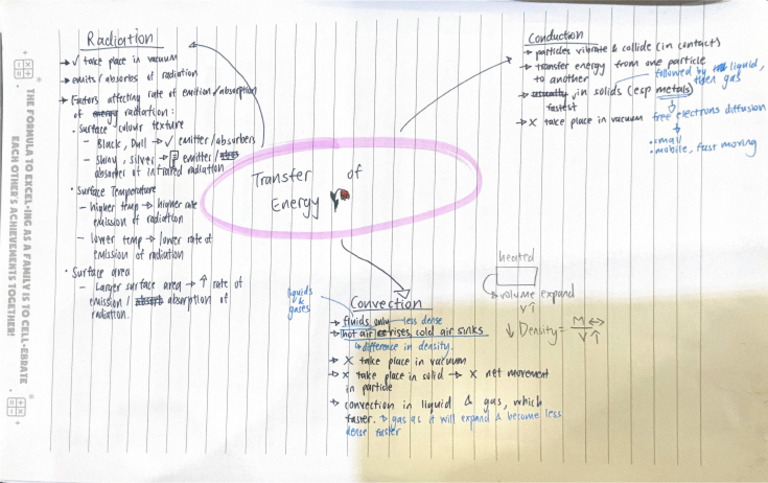 Radiation
→ ✓ take place in vacuum
→ emits / absorbs of radiation
→ Factors affecting rate of emition/absorption
of radiation:
• Surface - colour texture
- Black, Dull → ✓ emitter/absorbers
- Shiny, silver → emitter /
absorber of infrared radiation
• Surface Temperature
- higher temp → higher rate
emission of radiation
- lower temp → lower rate of
emission of radiation
• Surface area
- Larger surface area → ↑ rate of
emission / absorption of
radiation.
Transfer of
Energy
Conduction
→ particles vibrate & collide (in contact)
→ transfer energy from one particle
to another
followed by liquid,
then gas
→ in solids (esp metals)
fastest
→ X take place in vacuum
free electrons diffusion
• small
• mobile, fast moving
Convection
liquids
&
gases
→ fluids only
less dense
→ hot air rises, cold air sinks
↳ difference in density.
→ X take place in vacuum
→ X take place in solid → X net movement
in particle
→ convection in liquid & gas, which
faster. → gas as it will expand & become less
dense faster
heated
volume expand
V↑
↓ Density = M↔
V↑
THE FORMULA TO EXCEL-ING AS A FAMILY IS TO CELL-EBRATE
EACH OTHER'S ACHIEVEMENTS TOGETHER!